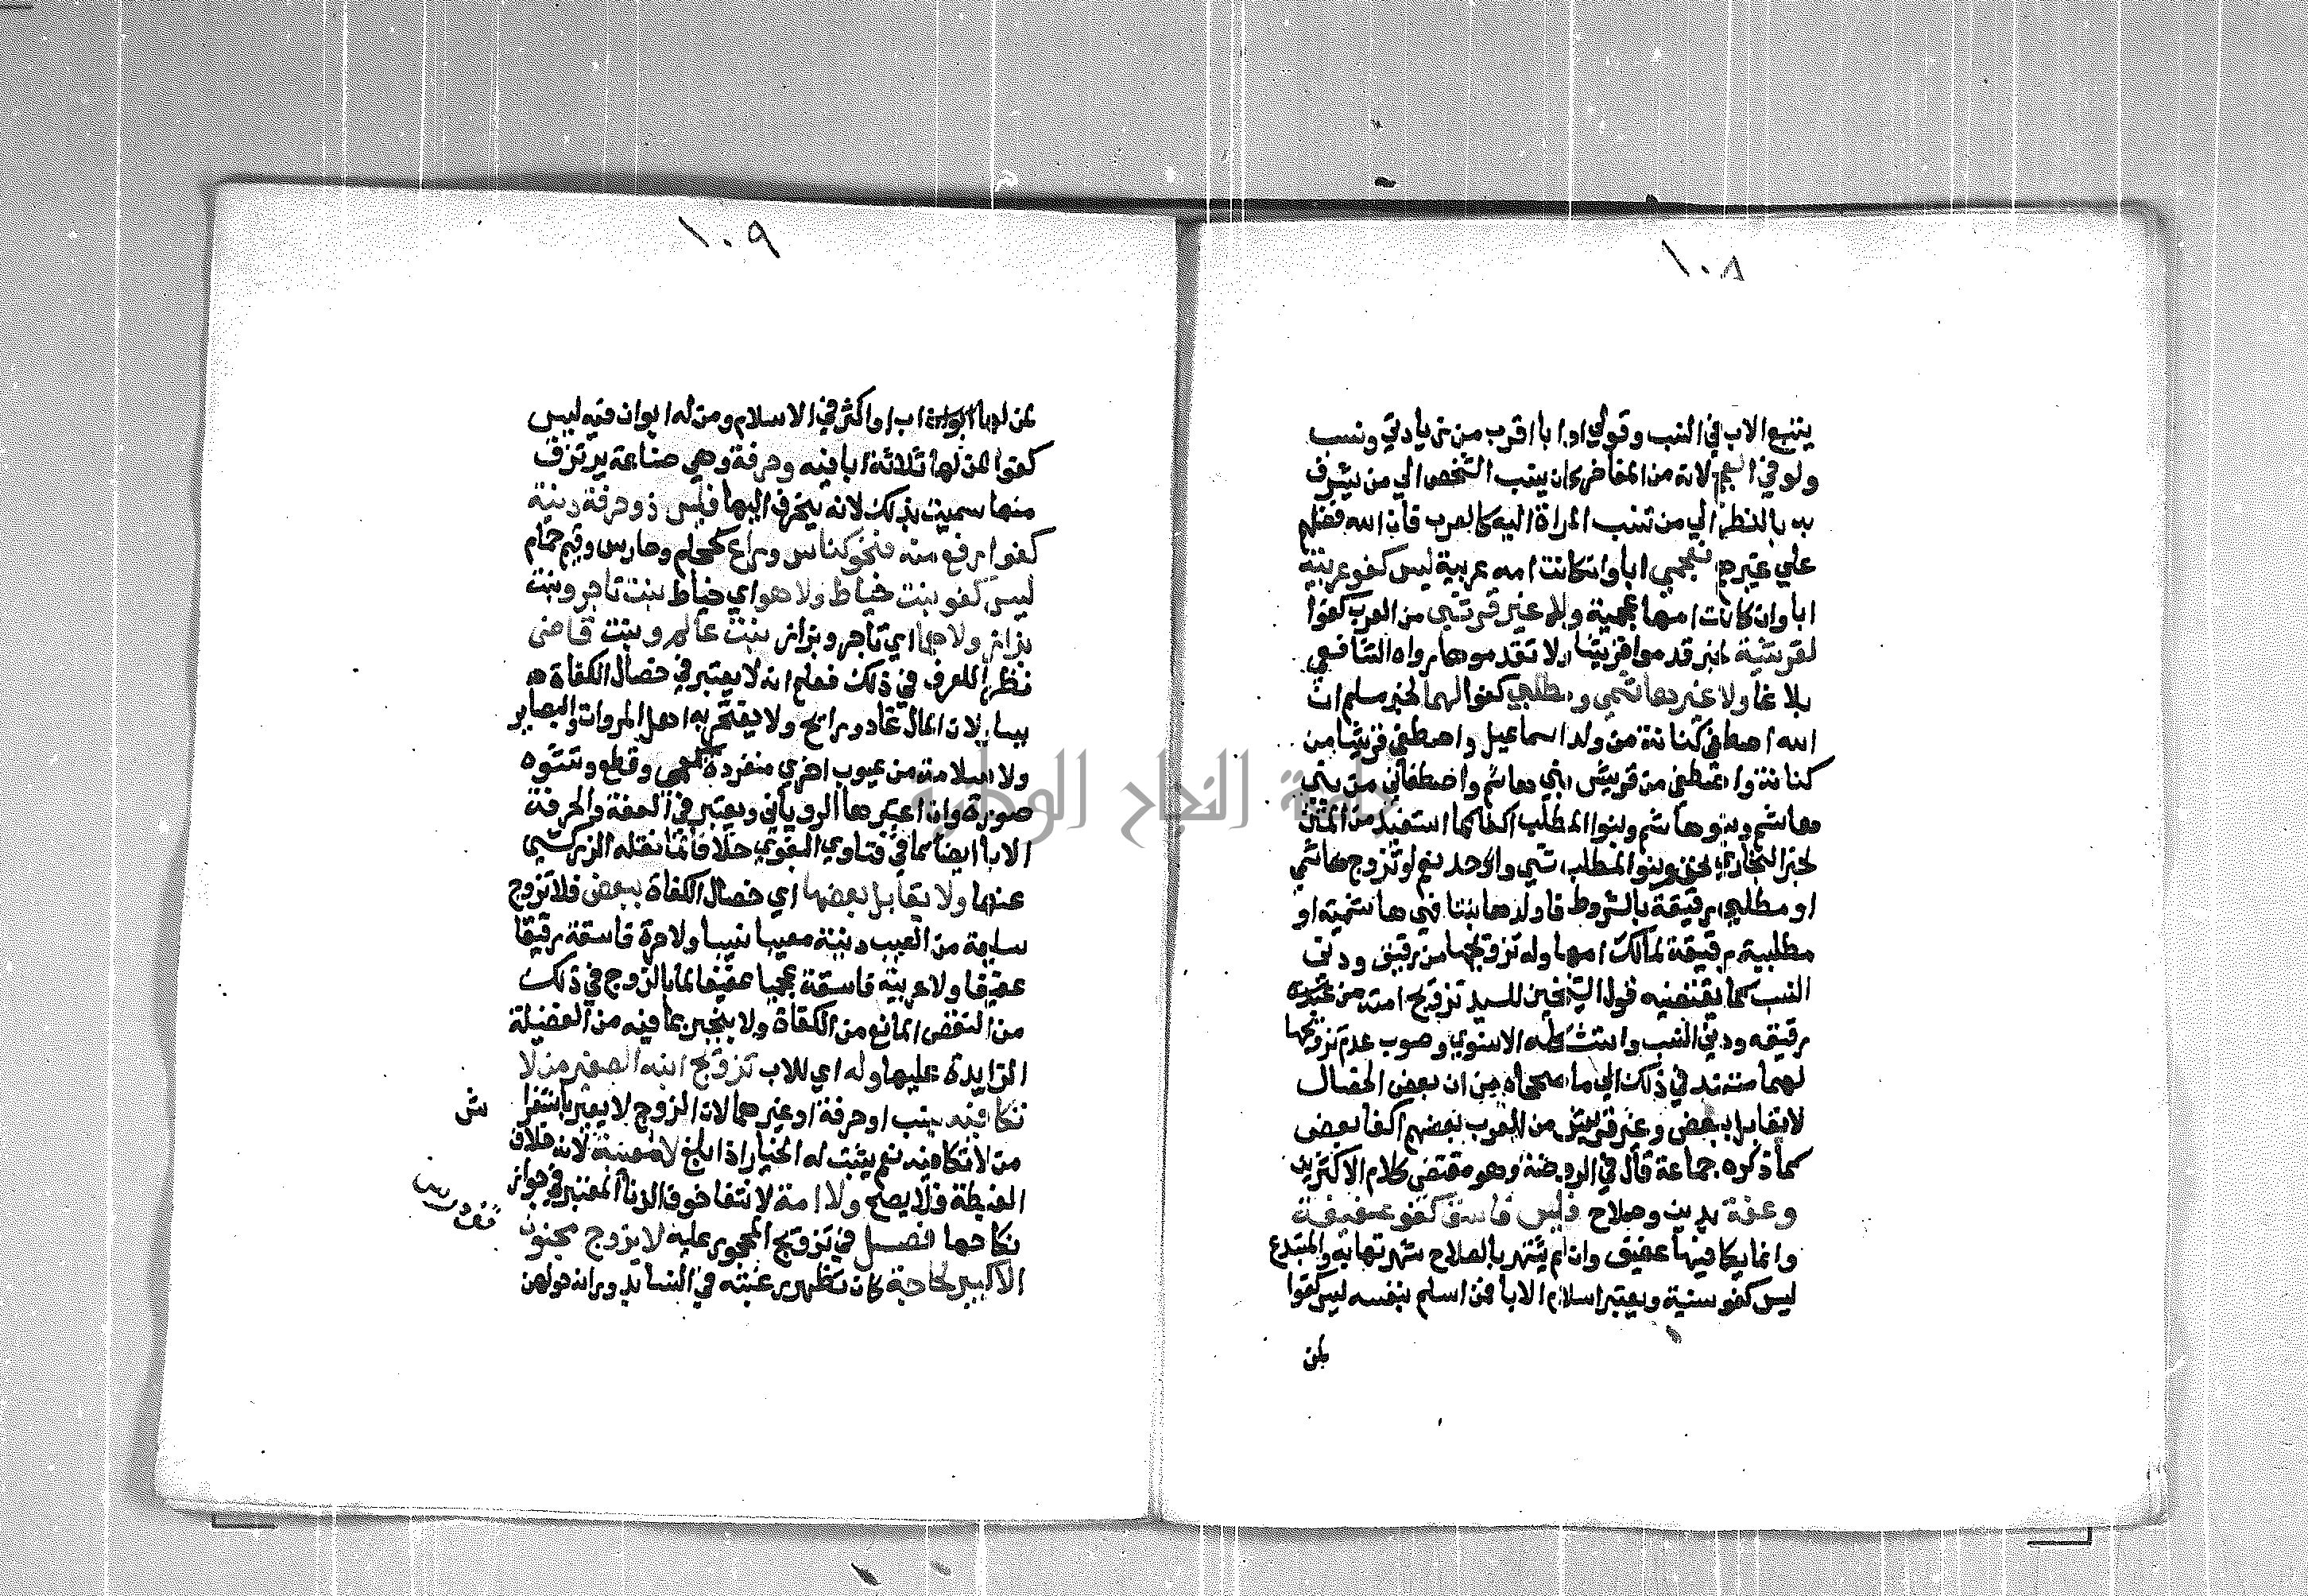 ١٠٨
يتبع الاب في النسب وقولي ابا اقرب من زيادتي ونسب
ولو في العجم لانه من المفاخر كان ينسب الشخص الي من يشرف
به بالنظر الي من تنسب المراة اليه كالعرب فان الله فضلهم
علي غيرهم فعجمي ابا وان كانت امه عربية ليس كفو عربية
ابا وان كانت امها عجمية ولا غير قرشي من العرب كفوا
لقرشية لخبر قدموا قريشا ولا تقدموها رواه الشافعي
بلاغا ولا غير هاشمي ومطلبي كفوا لهما لخبر مسلم ان
الله اصطفي كنانة من ولد اسماعيل واصطفي قريشا من
كنانة واصطفي من قريش بني هاشم واصطفاني من بني
هاشم وبنو هاشم وبنوا المطلب اكفا كما استفيد من المتن
لخبر البخاري نحن وبنوا المطلب شي واحد نعم لو تزوج هاشمي
او مطلبي رقيقة بالشروط فاولدها بنتا فهي هاشمية او
مطلبية رقيقة لمالك امها وله تزويجها من رقيق ودني
النسب كما يقتضيه قول الشيخين للسيد تزويج امته من عبده
رقيقه ودني النسب واستشكله الاسنوي وصوب عدم تزويجها
لهما مستند في ذلك الي ما صححاه من ان بعض الخصال
لا تقابل ببعض وغير قريش من العرب بعضهم اكفا بعض
كما ذكره جماعة قال في الروضة وهو مقتضي كلام الاكثرين
وعفة بدين وصلاح فليس فاسق كفو عفيفة
وانما يكافيها عفيف وان لم يشتهر بالصلاح شهرتها به والمبتدع
ليس كفو سنية ويعتبر اسلام الابا فمن اسلم بنفسه ليس كفوا
لمن
١٠٩
لمن لها اب او اكثر في الاسلام ومن له ابوان فيه ليس
كفوا لمن لها ثلاثة ابا فيه وحرفة وهي صناعة يرتزق
منها سميت بذلك لانه ينحرف اليها فليس ذو حرفة دنية
كفوا ارفع منه فنحو كناس وراع كحجام وحارس وقيم حمام
ليس كفو بنت خياط ولا هو اي خياط بنت تاجر وبنت
بزاز ولا هما اي تاجر وبزاز بنت عالم وبنت قاضي
نظرا للعرف في ذلك فعلم انه لا يعتبر في خصال الكفاة
يسار لان المال غاد ورايح ولا يفتخر به اهل المروات والبصاير
ولا سلامة من عيوب اخري منفردة كعمي وقطع وتشوه
صورة وان اعتبرها الروياني ويعتبر في العفة والحرفة
الابا ايضا كما في فتاوي البغوي خلافا لما نقله الزركشي
عنها ولا يقابل بعضها اي خصال الكفاة ببعض فلا تزوج
سليمة من العيب دنية معيبا نسيبا ولا حرة فاسقة رقيقا
عفيفا ولا عربية فاسقة عجميا عفيفا لما بالزوج في ذلك
من النقص المانع من الكفاة ولا ينجبر بما فيه من الفضيلة
الزايدة عليها وله اي للاب تزويج ابنه الصغير من لا
تكافيه بنسب او حرفة او غيرهما لان الزوج لا يعير باستفرا
ش
من لا تكافيه نعم يثبت له الخيار اذا بلغ لا معيبة لانه خلاف
الغبطة فلا يصح ولا امة لانتفا خوف الزنا المعتبر في جواز
نكاحها فصل في تزويج المحجور عليه لا يزوج مجنون
الا كبير لحاجة كان تظهر رغبته في النسا بدورانه حولهن